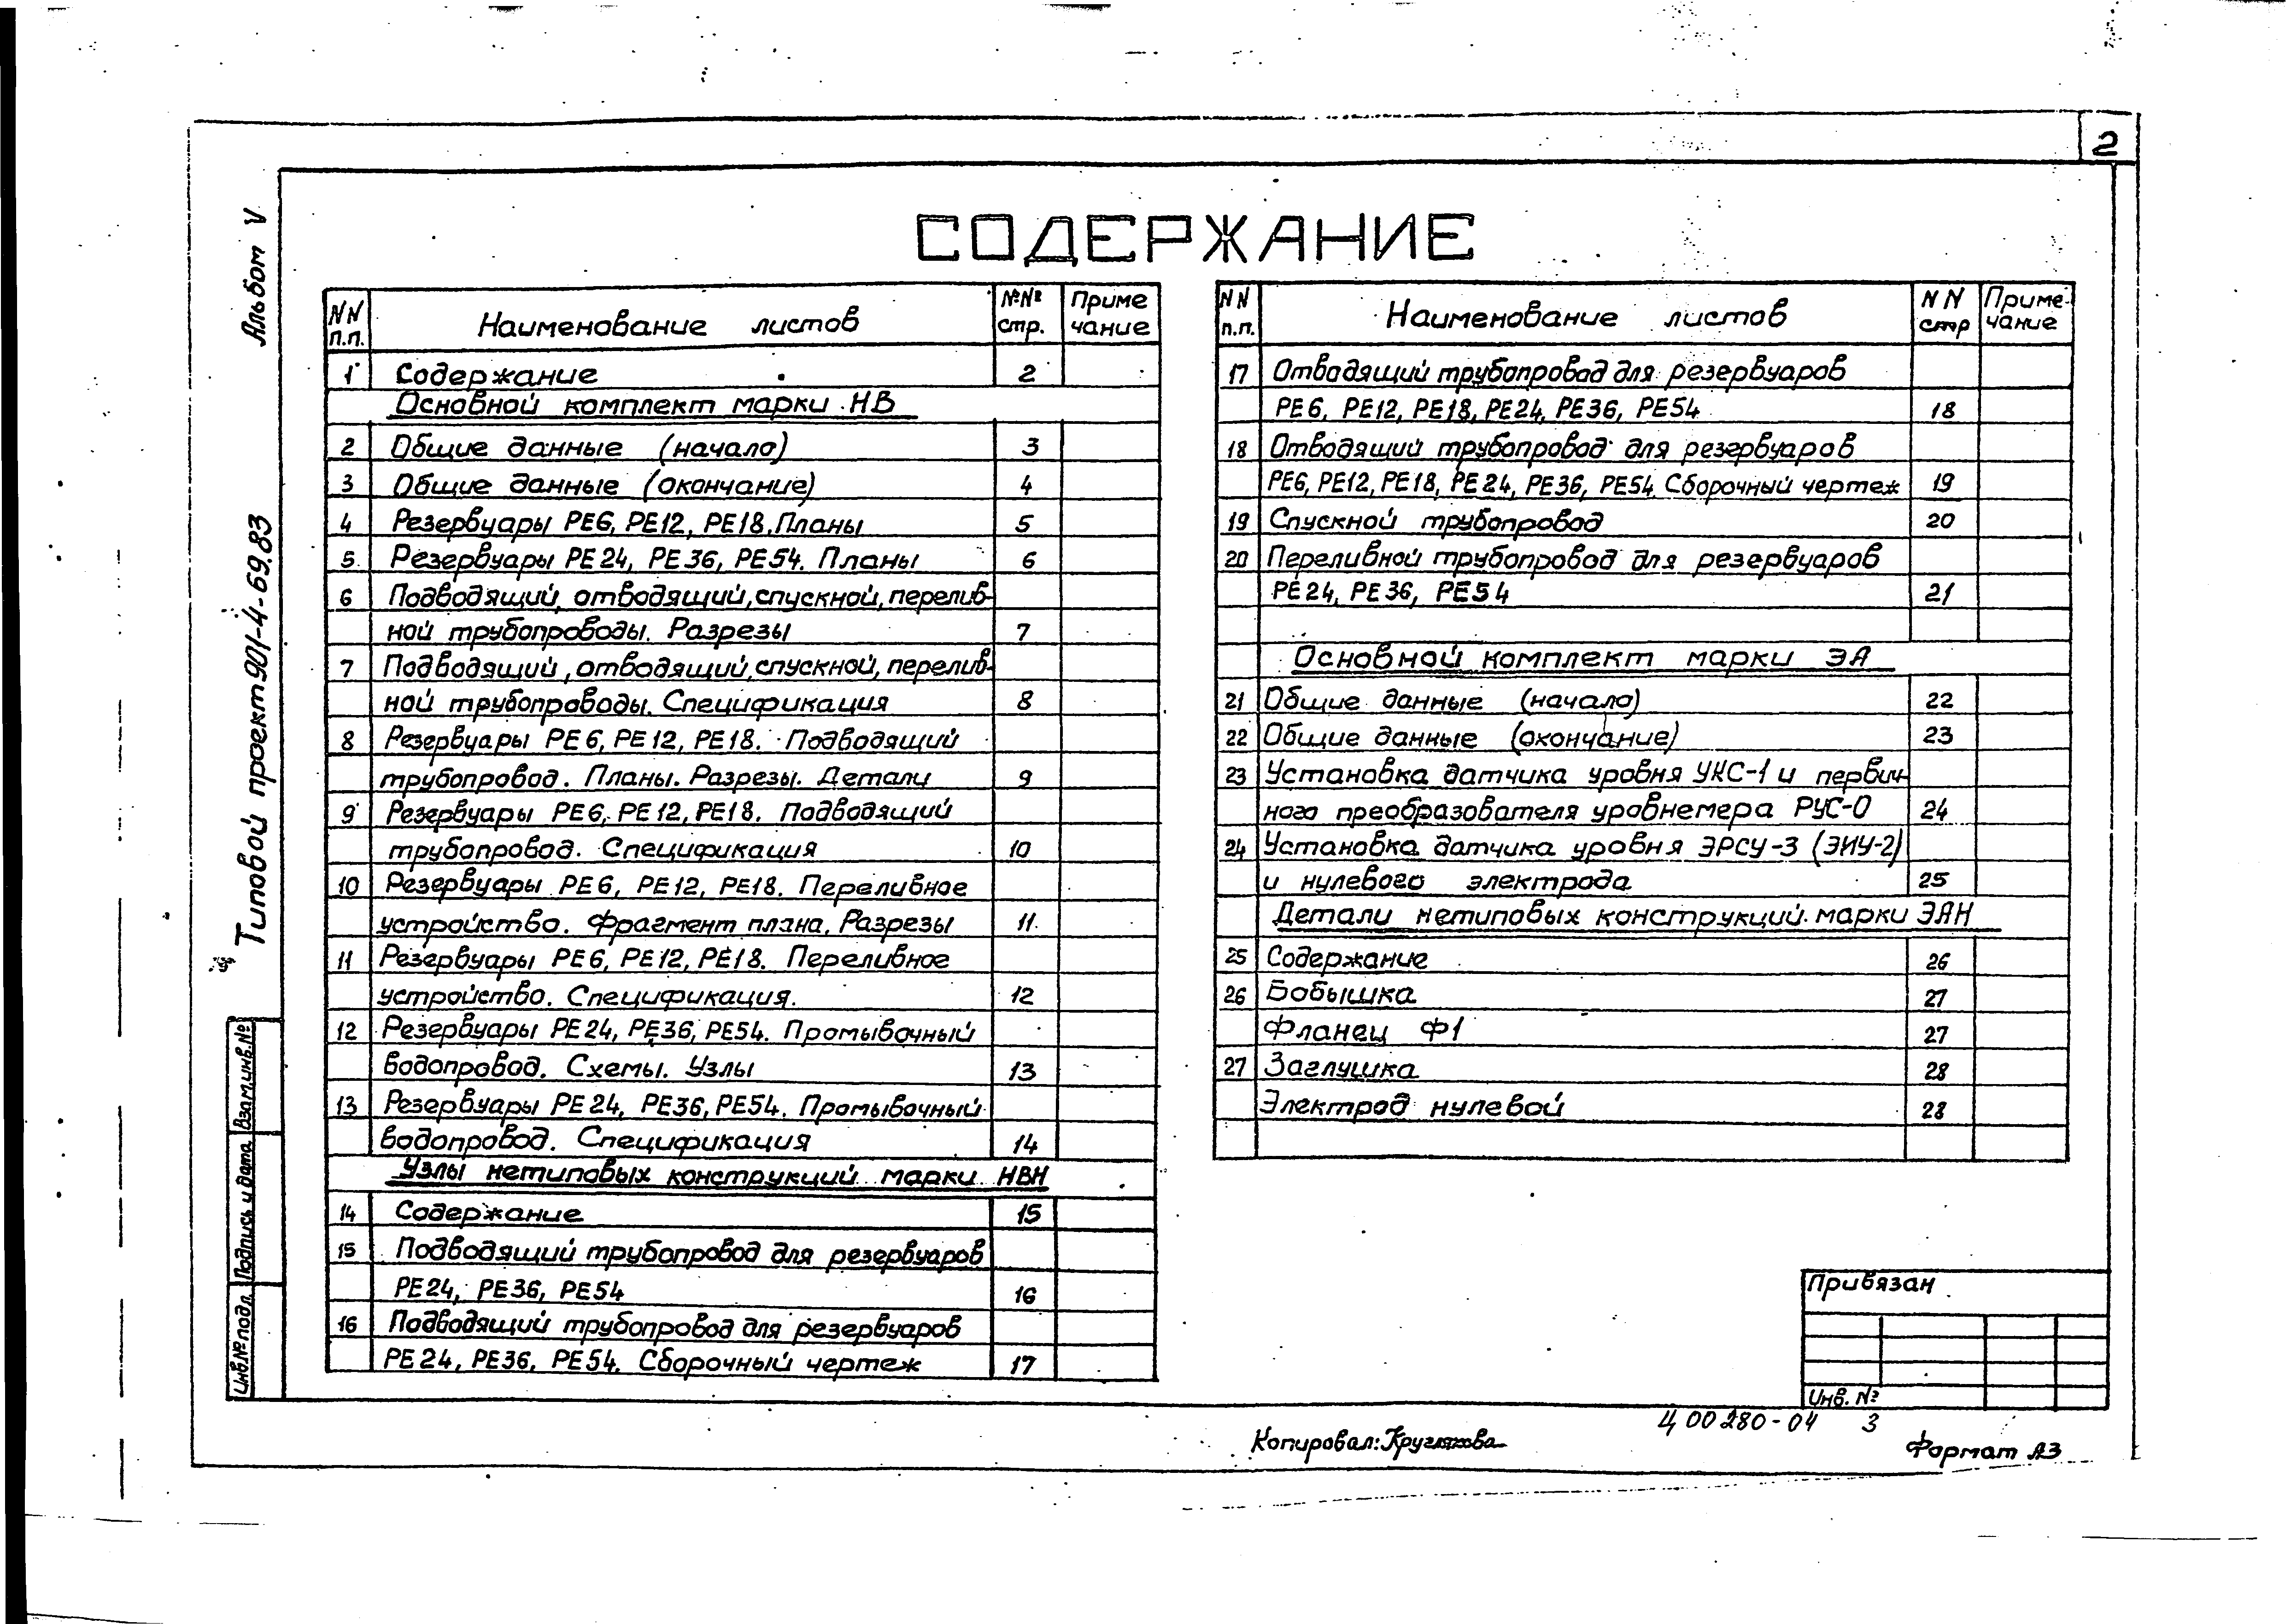 2
СОДЕРЖАНИЕ
Альбом V
Типовой проект 901-4-69.83
NN п.п. Наименование листов №№ стр. Приме чание
1 Содержание 2
Основной комплект марки НВ
2 Общие данные (начало) 3
3 Общие данные (окончание) 4
4 Резервуары РЕ6, РЕ12, РЕ18. Планы 5
5 Резервуары РЕ24, РЕ36, РЕ54. Планы 6
6 Подводящий, отводящий, спускной, перелив-
ной трубопроводы. Разрезы 7
7 Подводящий, отводящий, спускной, перелив-
ной трубопроводы. Спецификация 8
8 Резервуары РЕ6, РЕ12, РЕ18. Подводящий
трубопровод. Планы. Разрезы. Детали 9
9 Резервуары РЕ6, РЕ12, РЕ18. Подводящий
трубопровод. Спецификация 10
10 Резервуары РЕ6, РЕ12, РЕ18. Переливное
устройство. Фрагмент плана. Разрезы 11
11 Резервуары РЕ6, РЕ12, РЕ18. Переливное
устройство. Спецификация. 12
12 Резервуары РЕ24, РЕ36, РЕ54. Промывочный
водопровод. Схемы. Узлы 13
13 Резервуары РЕ24, РЕ36, РЕ54. Промывочный
водопровод. Спецификация 14
Узлы нетиповых конструкций марки НВН
14 Содержание 15
15 Подводящий трубопровод для резервуаров
РЕ24, РЕ36, РЕ54 16
16 Подводящий трубопровод для резервуаров
РЕ24, РЕ36, РЕ54. Сборочный чертеж 17
NN п.п. Наименование листов NN стр Приме- чание
17 Отводящий трубопровод для резервуаров
РЕ6, РЕ12, РЕ18, РЕ24, РЕ36, РЕ54 18
18 Отводящий трубопровод для резервуаров
РЕ6, РЕ12, РЕ18, РЕ24, РЕ36, РЕ54 Сборочный чертеж 19
19 Спускной трубопровод 20
20 Переливной трубопровод для резервуаров
РЕ24, РЕ36, РЕ54 21
Основной комплект марки ЭА
21 Общие данные (начало) 22
22 Общие данные (окончание) 23
23 Установка датчика уровня УКС-1 и первич-
ного преобразователя уровнемера РУС-0 24
24 Установка датчика уровня ЭРСУ-3 (ЭИУ-2)
и нулевого электрода 25
Детали нетиповых конструкций марки ЭАН
25 Содержание 26
26 Бобышка 27
Фланец Ф1 27
27 Заглушка 28
Электрод нулевой 28
Взам.инв.№
Подпись и дата
Инв.№подл.
Привязан
Инв. №
Ц00280-04 3
Копировал: Круглякова
Формат А3